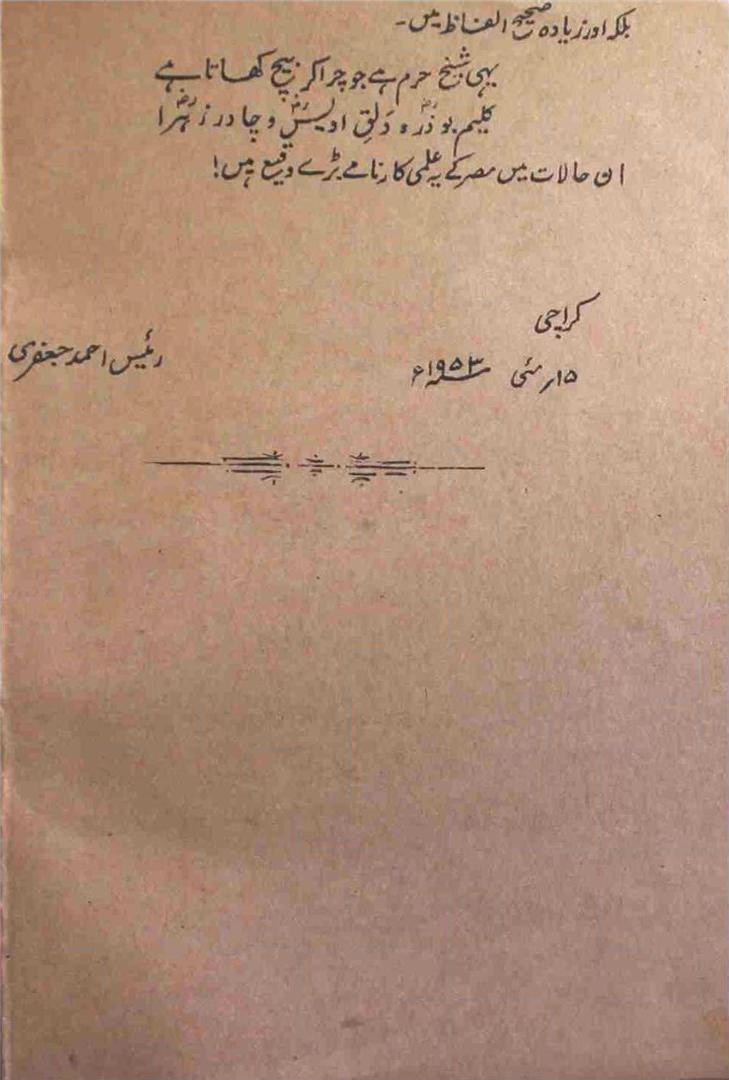 بلکہ اور زیادہ صحیح الفاظ میں۔
یہی شیخِ حرم ہے جو چرا کر بیچ کھاتا ہے
گلیم بوذرؓ و دَلقِ اویسؓ و چادر زہراؓ
ان حالات میں مصر کے یہ علمی کارنامے بڑے وقیع ہیں!
کراچی
۱۵؍ مئی ۱۹۵۳ء
رئیس احمد جعفری